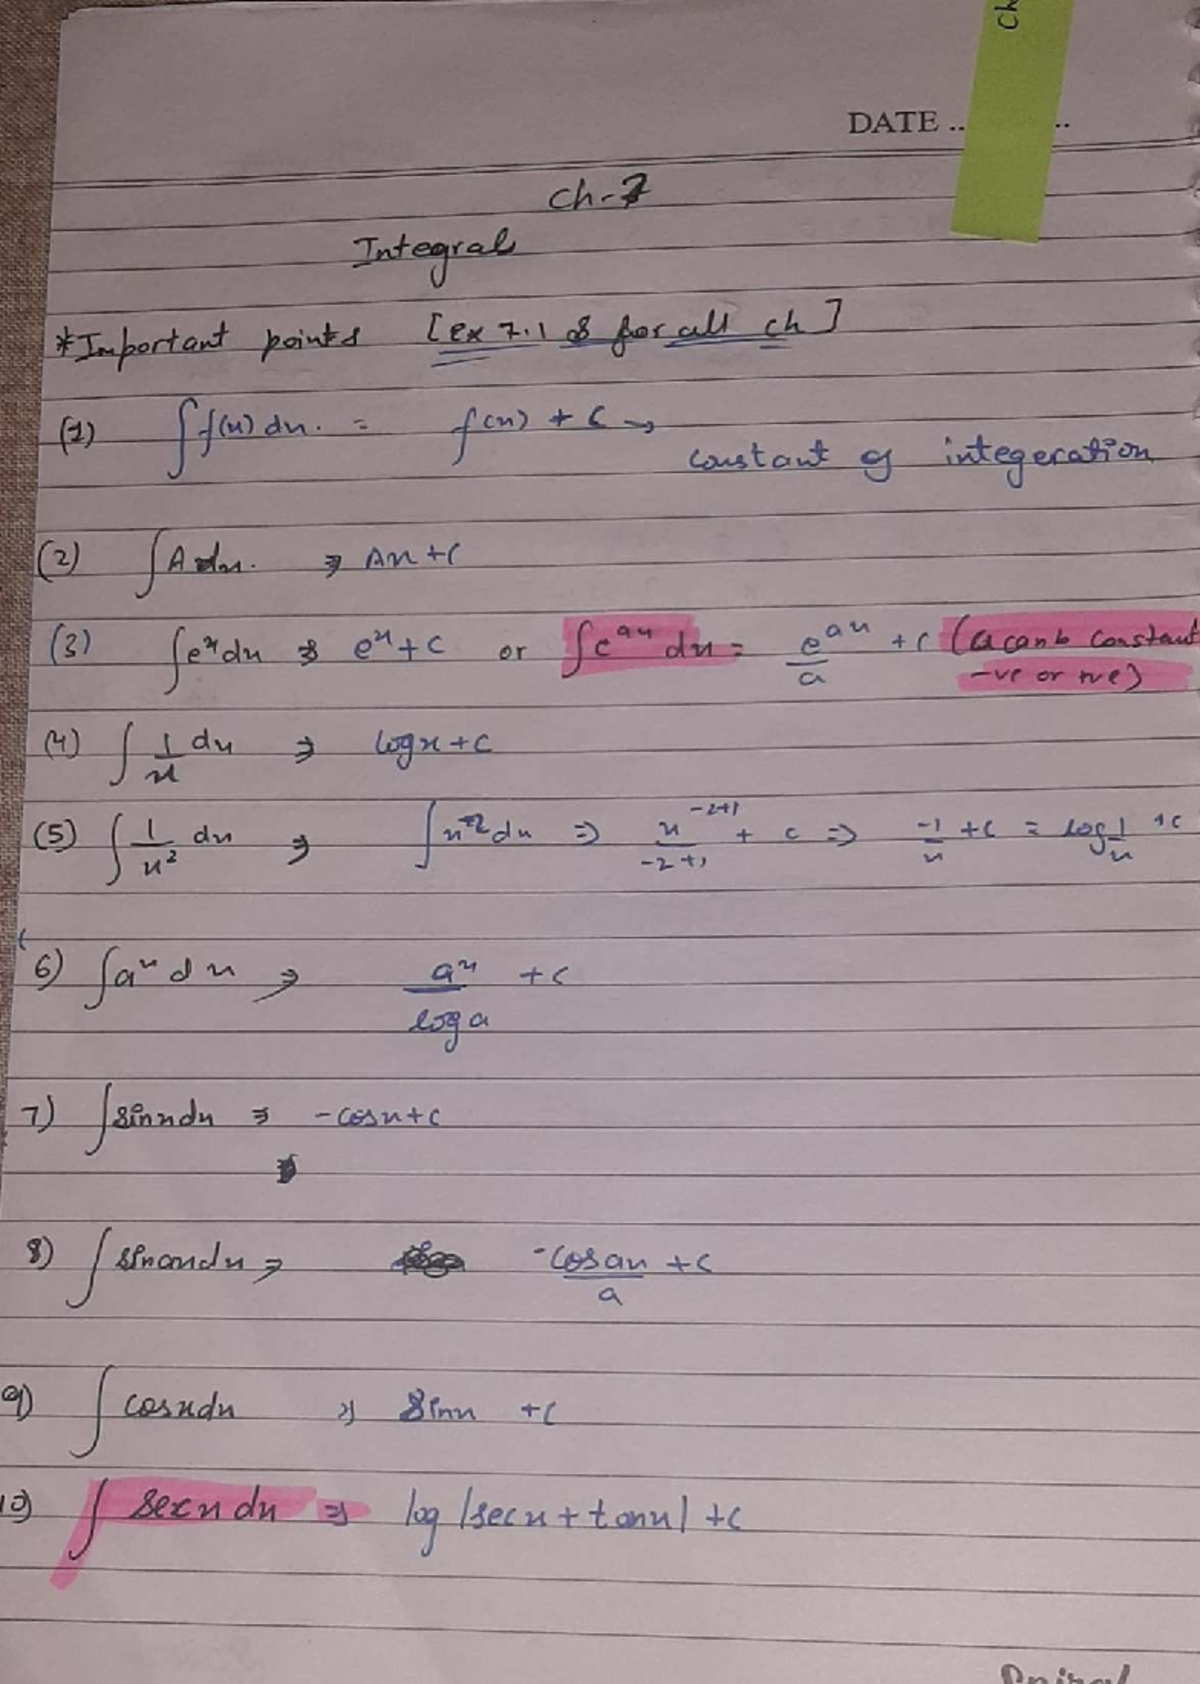 Ch
DATE ..
Ch-7
Integral
*Important points [ex 7.1 & for all ch]
(1) ∫f(x) dx. = f(x) + C → constant of integeration
(2) ∫A dx. ⇒ Ax + C
(3) ∫eˣ dx ⇒ eˣ + C or ∫e^ax dx = e^ax/a + C (a can b constant
-ve or +ve)
(4) ∫ 1/x dx ⇒ log x + C
(5) ∫ 1/x² dx ⇒ ∫x⁻² dx ⇒ x^(-2+1)/(-2+1) + C ⇒ -1/x + C = log 1/x + C
6) ∫aˣ dx ⇒ aˣ/log a + C
7) ∫sinx dx ⇒ -cosx + C
8) ∫sin ax dx ⇒ -cos ax/a + C
9) ∫cosx dx ⇒ Sinx + C
10) ∫ secx dx ⇒ log |secx + tanx| + C